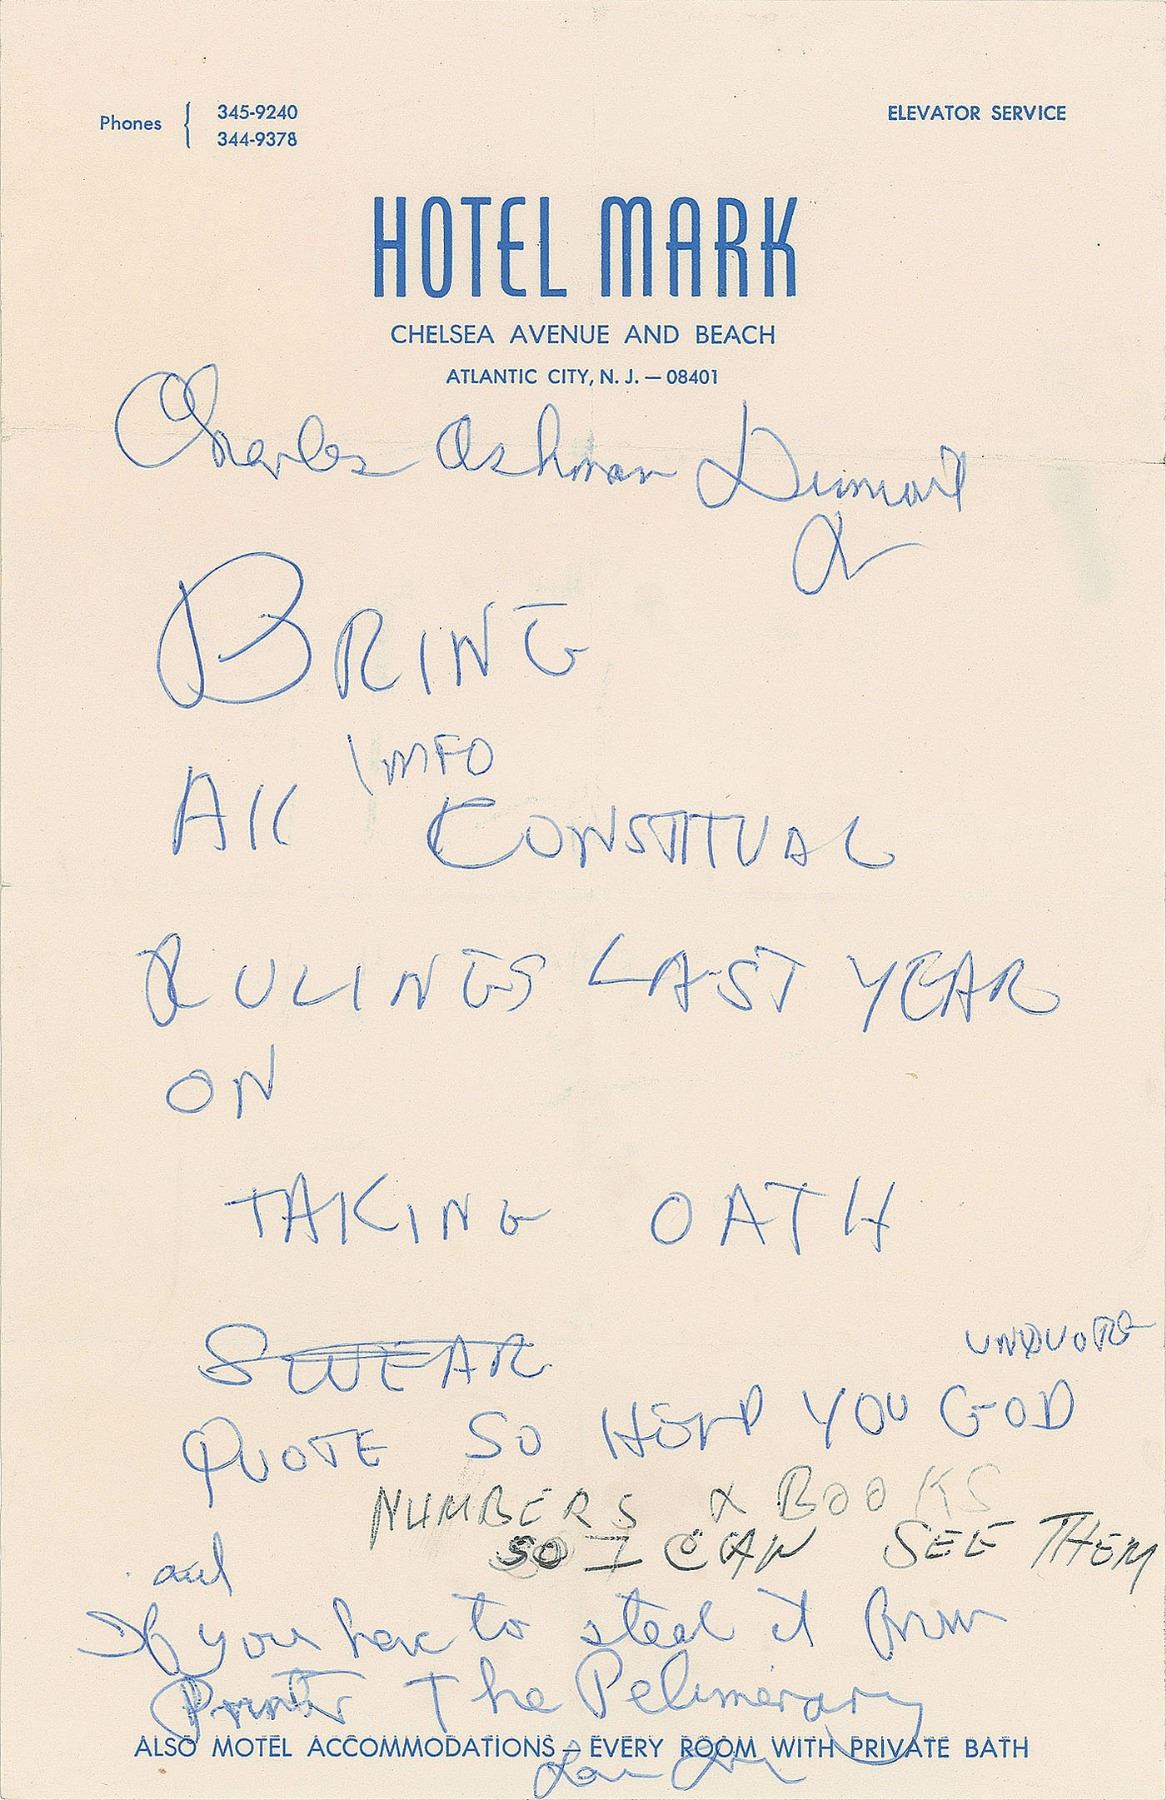 Phones 345-9240
344-9378
ELEVATOR SERVICE
HOTEL MARK
CHELSEA AVENUE AND BEACH
ATLANTIC CITY, N. J. — 08401
Charles Ashman
BRING
INFO
All CONSTITUAL
RULINGS LAST YEAR
ON
TAKING OATH
SWEAR
UNQUOTE
QUOTE SO HELP YOU GOD
NUMBERS & BOOKS
SO I CAN SEE THEM
and
If you have to steal it from
Printer The Pelimerary
ALSO MOTEL ACCOMMODATIONS - EVERY ROOM WITH PRIVATE BATH